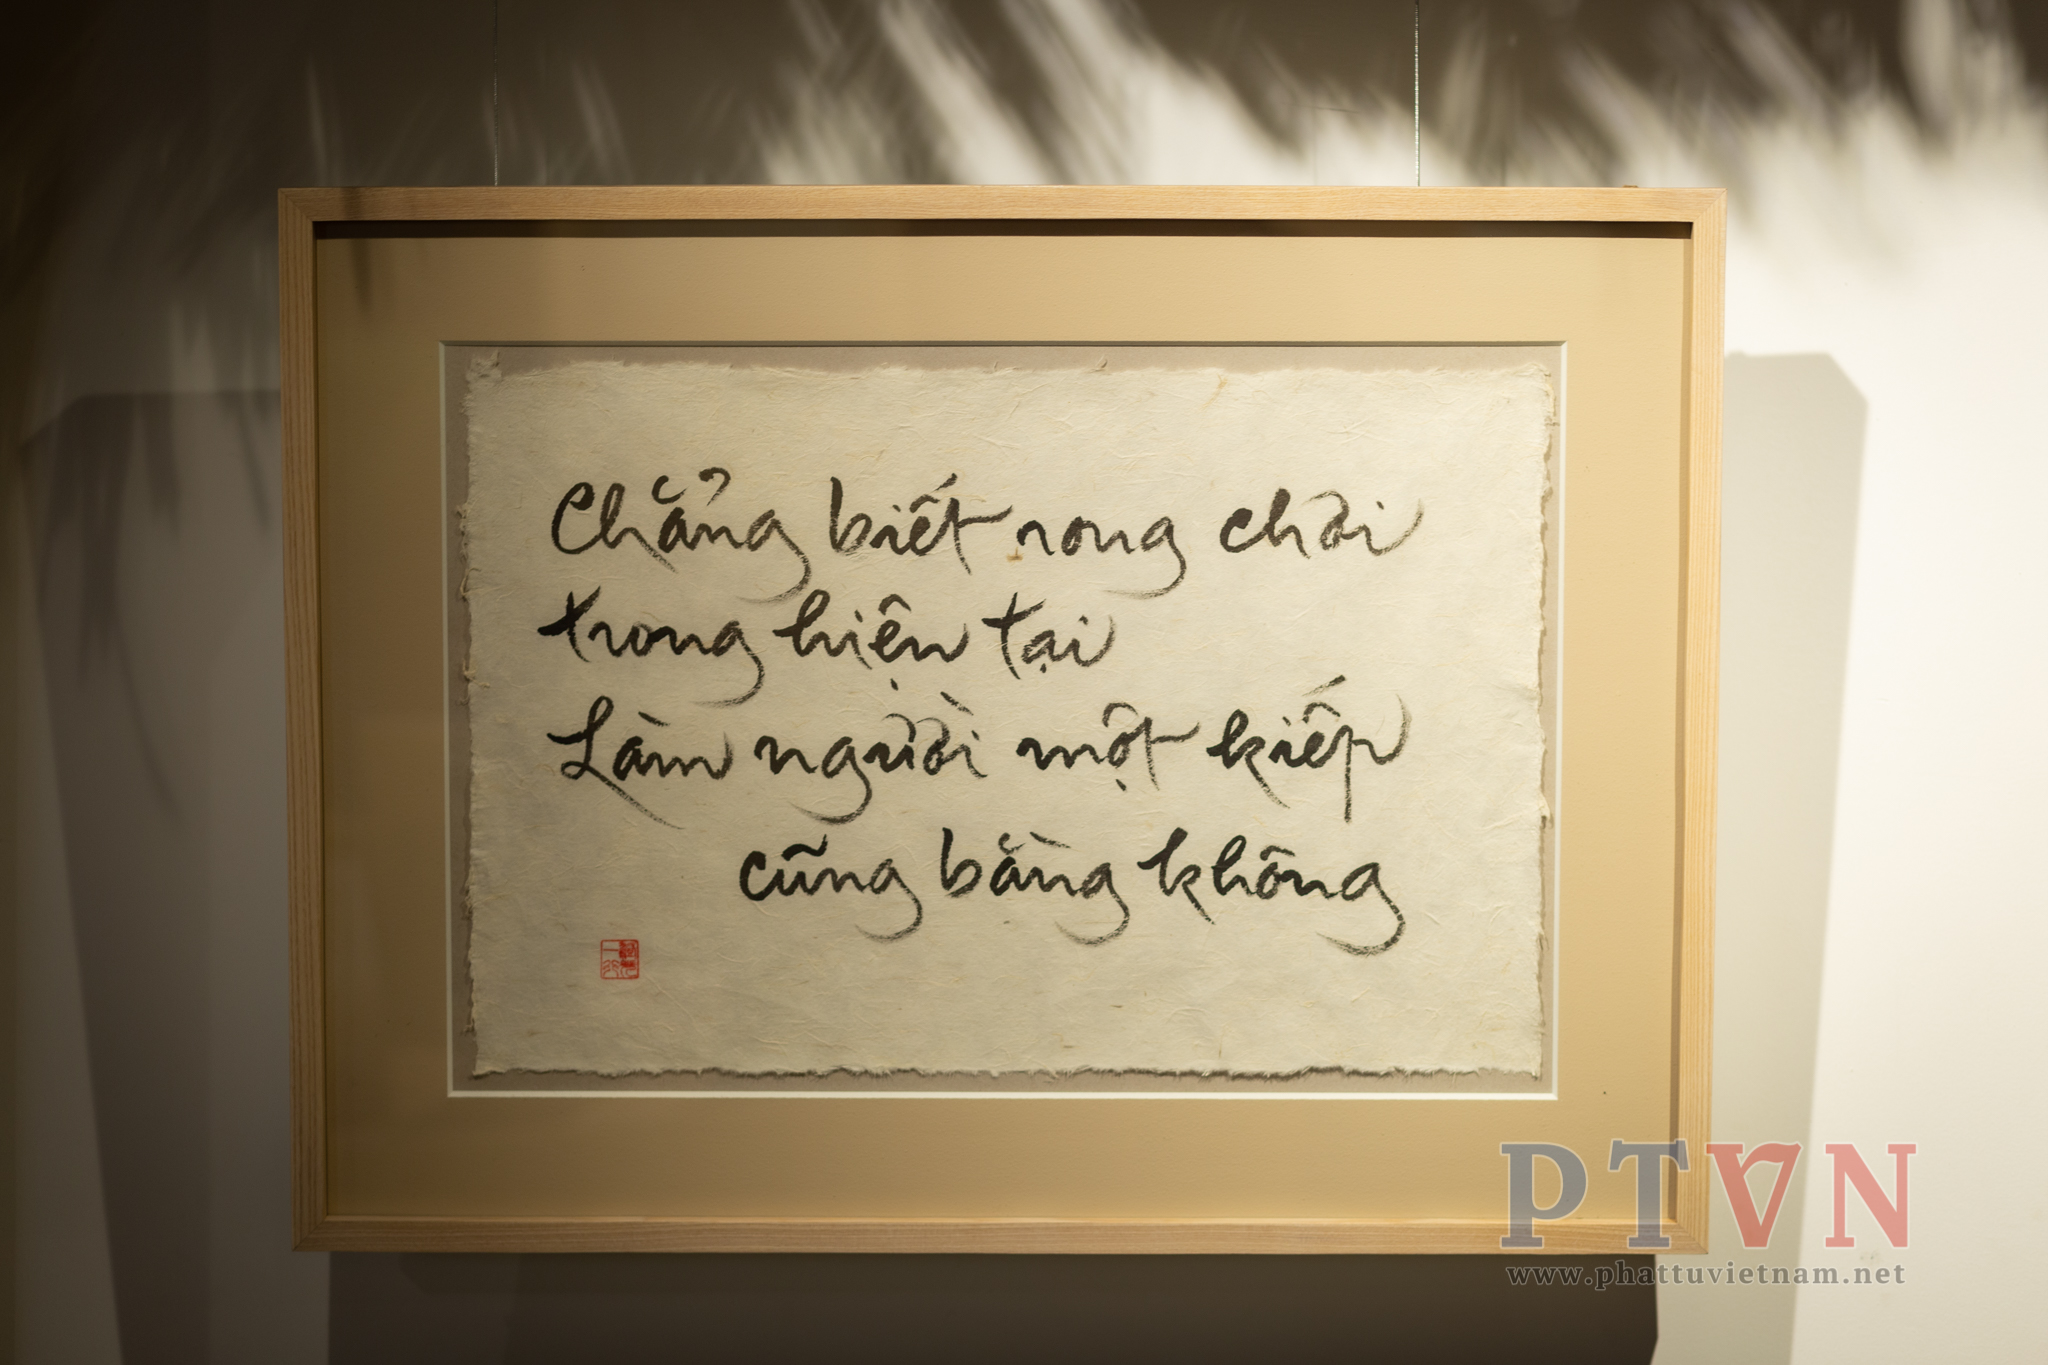 Chẳng biết rong chơi
trong hiện tại
Làm người một kiếp
cũng bằng không
PTVN
www.phattuvietnam.net